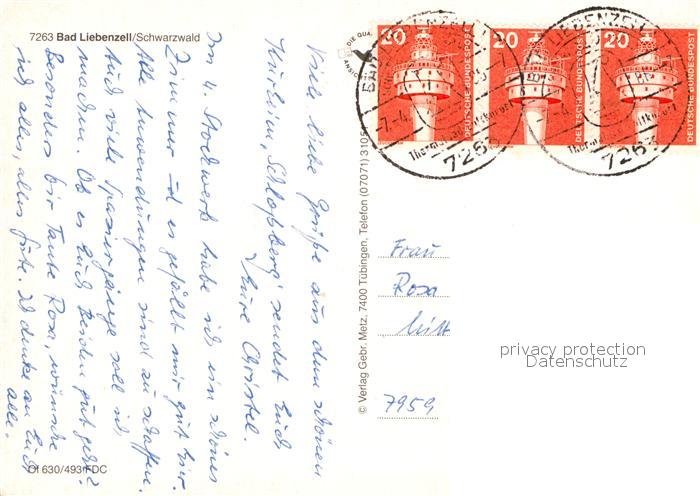 7263 Bad Liebenzell/Schwarzwald
Viele liebe Grüße aus dem schönen
Kurheim, Schloßberg sendet Euch
Eure Christel.
Im 4. Stockwerk habe ich ein schönes
Zimmer und es gefällt mir gut hier.
Alle Anwendungen sind zu schaffen.
Auch viele Spaziergänge soll ich
machen. Ob es Euch beiden gut geht?
Besonders Dir Tante Rosa, wünsche
ich alles, alles Gute. Ich denke an Euch
alle.
Of 630/493 FDC
© Verlag Gebr. Metz, 7400 Tübingen, Telefon (07071) 3105
DIE QUA
20
DEUTSCHE BUNDESPOST
20
DEUTSCHE BUNDESPOST
20
DEUTSCHE BUNDESPOST
BAD LIEBENZELL
7263
LIEBENZELL
7263
Frau
Rosa
7959
privacy protection
Datenschutz